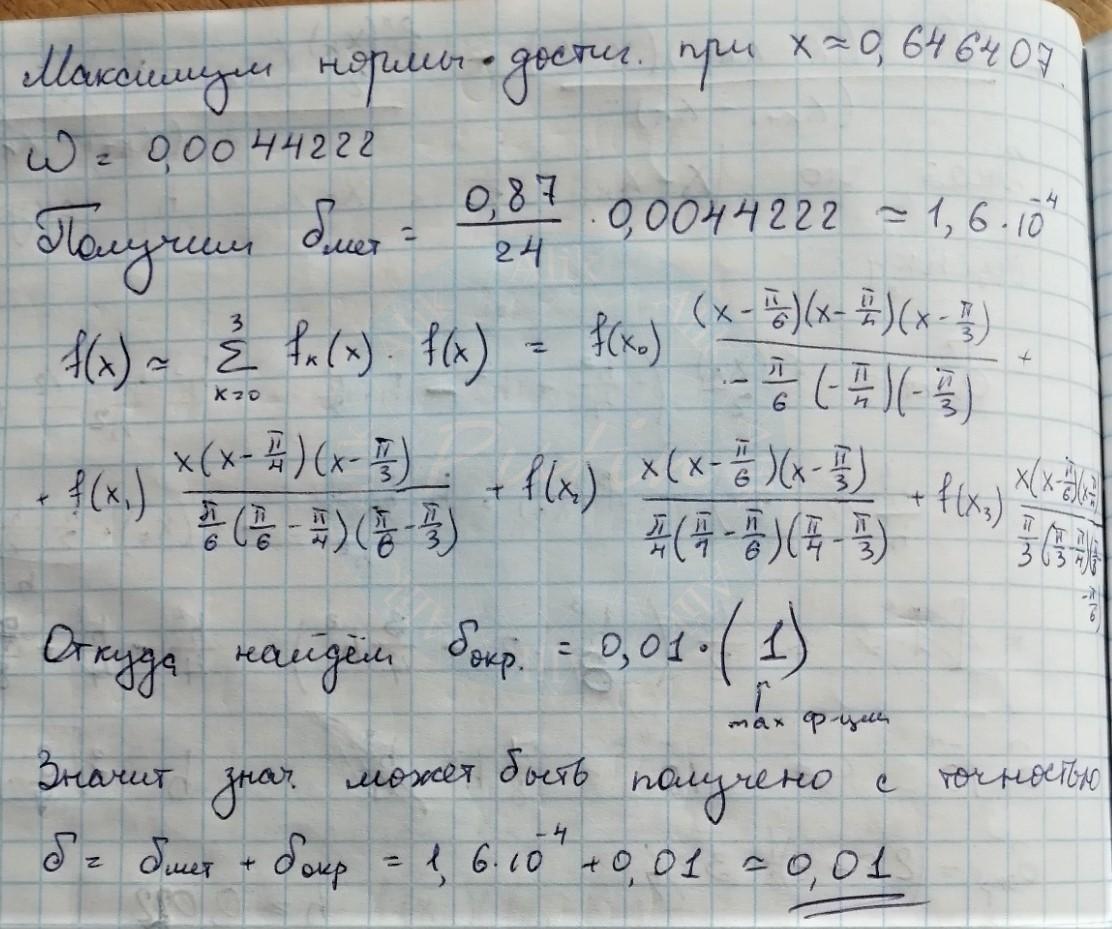 Максимум нормы достиг. при x ≈ 0,646407
ω = 0,0044222
Получим δмет = 0,87/24 · 0,0044222 ≈ 1,6·10^-4
f(x) ≈ Σ_{k=0}^{3} fk(x) · f(x) = f(x₀) (x - π/6)(x - π/4)(x - π/3) / -π/6 (-π/4)(-π/3) +
+ f(x₁) x(x - π/4)(x - π/3) / π/6 (π/6 - π/4)(π/6 - π/3) + f(x₂) x(x - π/6)(x - π/3) / π/4 (π/4 - π/6)(π/4 - π/3) + f(x₃) x(x - π/6)(x - π/4) / π/3 (π/3 - π/4)(π/3 - π/6)
Откуда найдём δокр. = 0,01 · (1)
max ф-ции
Значит знач. может быть получено с точностью
δ = δмет + δокр = 1,6·10^-4 + 0,01 ≈ 0,01